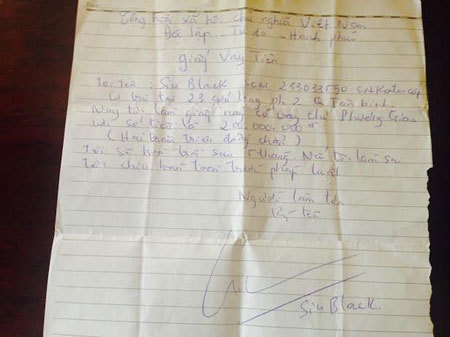 Cộng hòa xã hội chủ nghĩa Việt Nam
Độc lập - Tự do - Hạnh phúc
giấy Vay Tiền
Tôi tên : Siu Black CM 233033590 CA Kontum cấp
trú tại 23 ph 2 Q Tân bình
Nay tôi làm giấy này có vay chị Phương Giao
với số tiền là 200.000.000 đ
( Hai trăm triệu đồng chẵn )
tôi sẽ hoàn trả sau 5 tháng. Nếu tôi làm sai
tôi chịu hoàn toàn trước pháp luật
Người làm đơn
Ký tên
Siu Black.